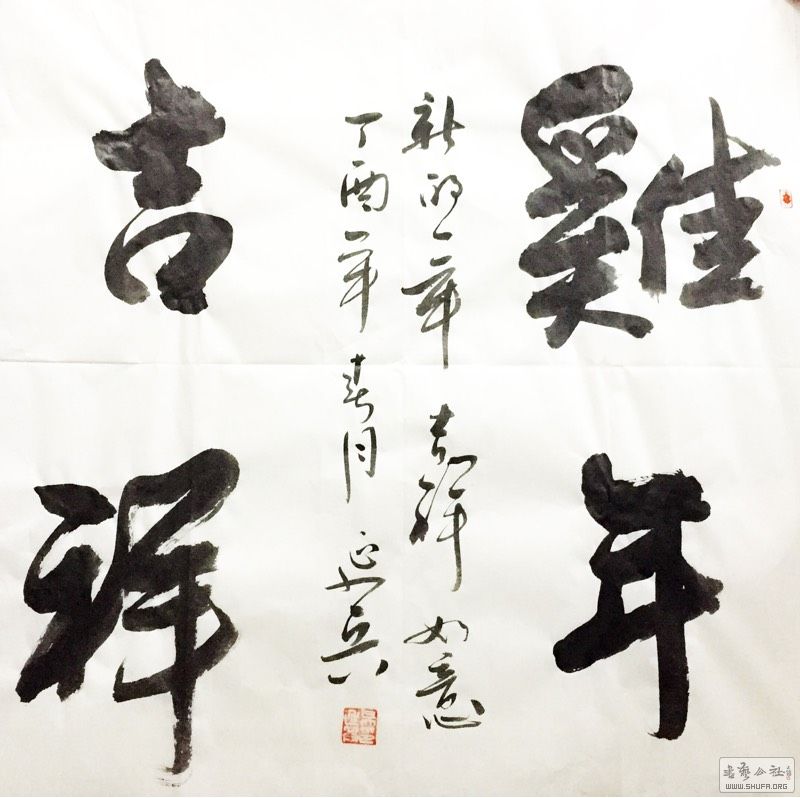 雞年
吉祥
新的一年 吉祥 如意
丁酉年 春月 延兵
書藝公社
WWW.SHUFA.ORG